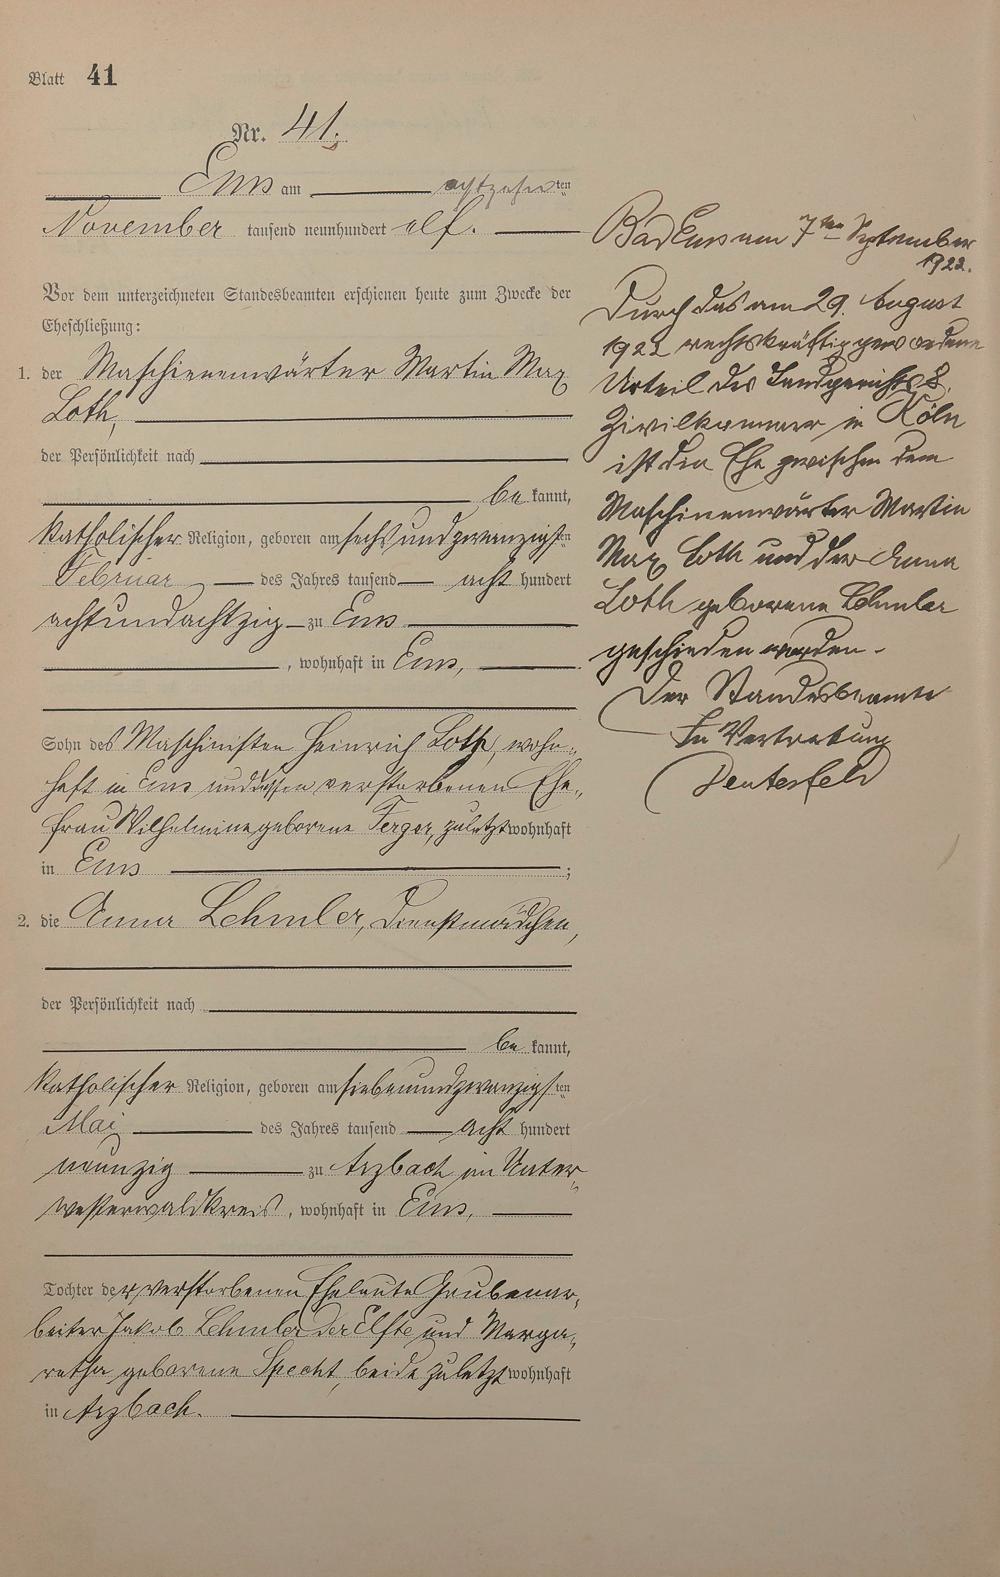 Blatt 41
Nr. 41.
Ems am achtzehnten
November tausend neunhundert elf.
Vor dem unterzeichneten Standesbeamten erschienen heute zum Zwecke der
Eheschließung:
1. der Maschinenwärter Martin Max
Loth,
der Persönlichkeit nach
bekannt,
katholischer Religion, geboren am sechsundzwanzigsten
Februar des Jahres tausend acht hundert
achtundachtzig zu Ems
, wohnhaft in Ems,
Sohn des Maschinisten Heinrich Loth, wohn-
haft in Ems und dessen verstorbenen Ehe-
frau Wilhelmine geborene Ferger, zuletzt wohnhaft
in Ems ;
2. die Anna Lehmler, Dienstmädchen,
der Persönlichkeit nach
bekannt,
katholischer Religion, geboren am siebenundzwanzigsten
Mai des Jahres tausend acht hundert
neunzig zu Arzbach im Unter-
westerwaldkreis, wohnhaft in Ems,
Tochter der verstorbenen Eheleute Grubenar-
beiter Jakob Lehmler der Elfte und Marga-
retha geborene Specht, beide zuletzt wohnhaft
in Arzbach.
Bad Ems am 7ten September
1922.
Durch das am 29. August
1922 rechtskräftig gewordene
Urteil des Landgerichts 8.
Zivilkammer in Köln
ist die Ehe zwischen dem
Maschinenwärter Martin
Max Loth und der Anna
Loth geborene Lehmler
geschieden worden.
Der Standesbeamte
In Vertretung